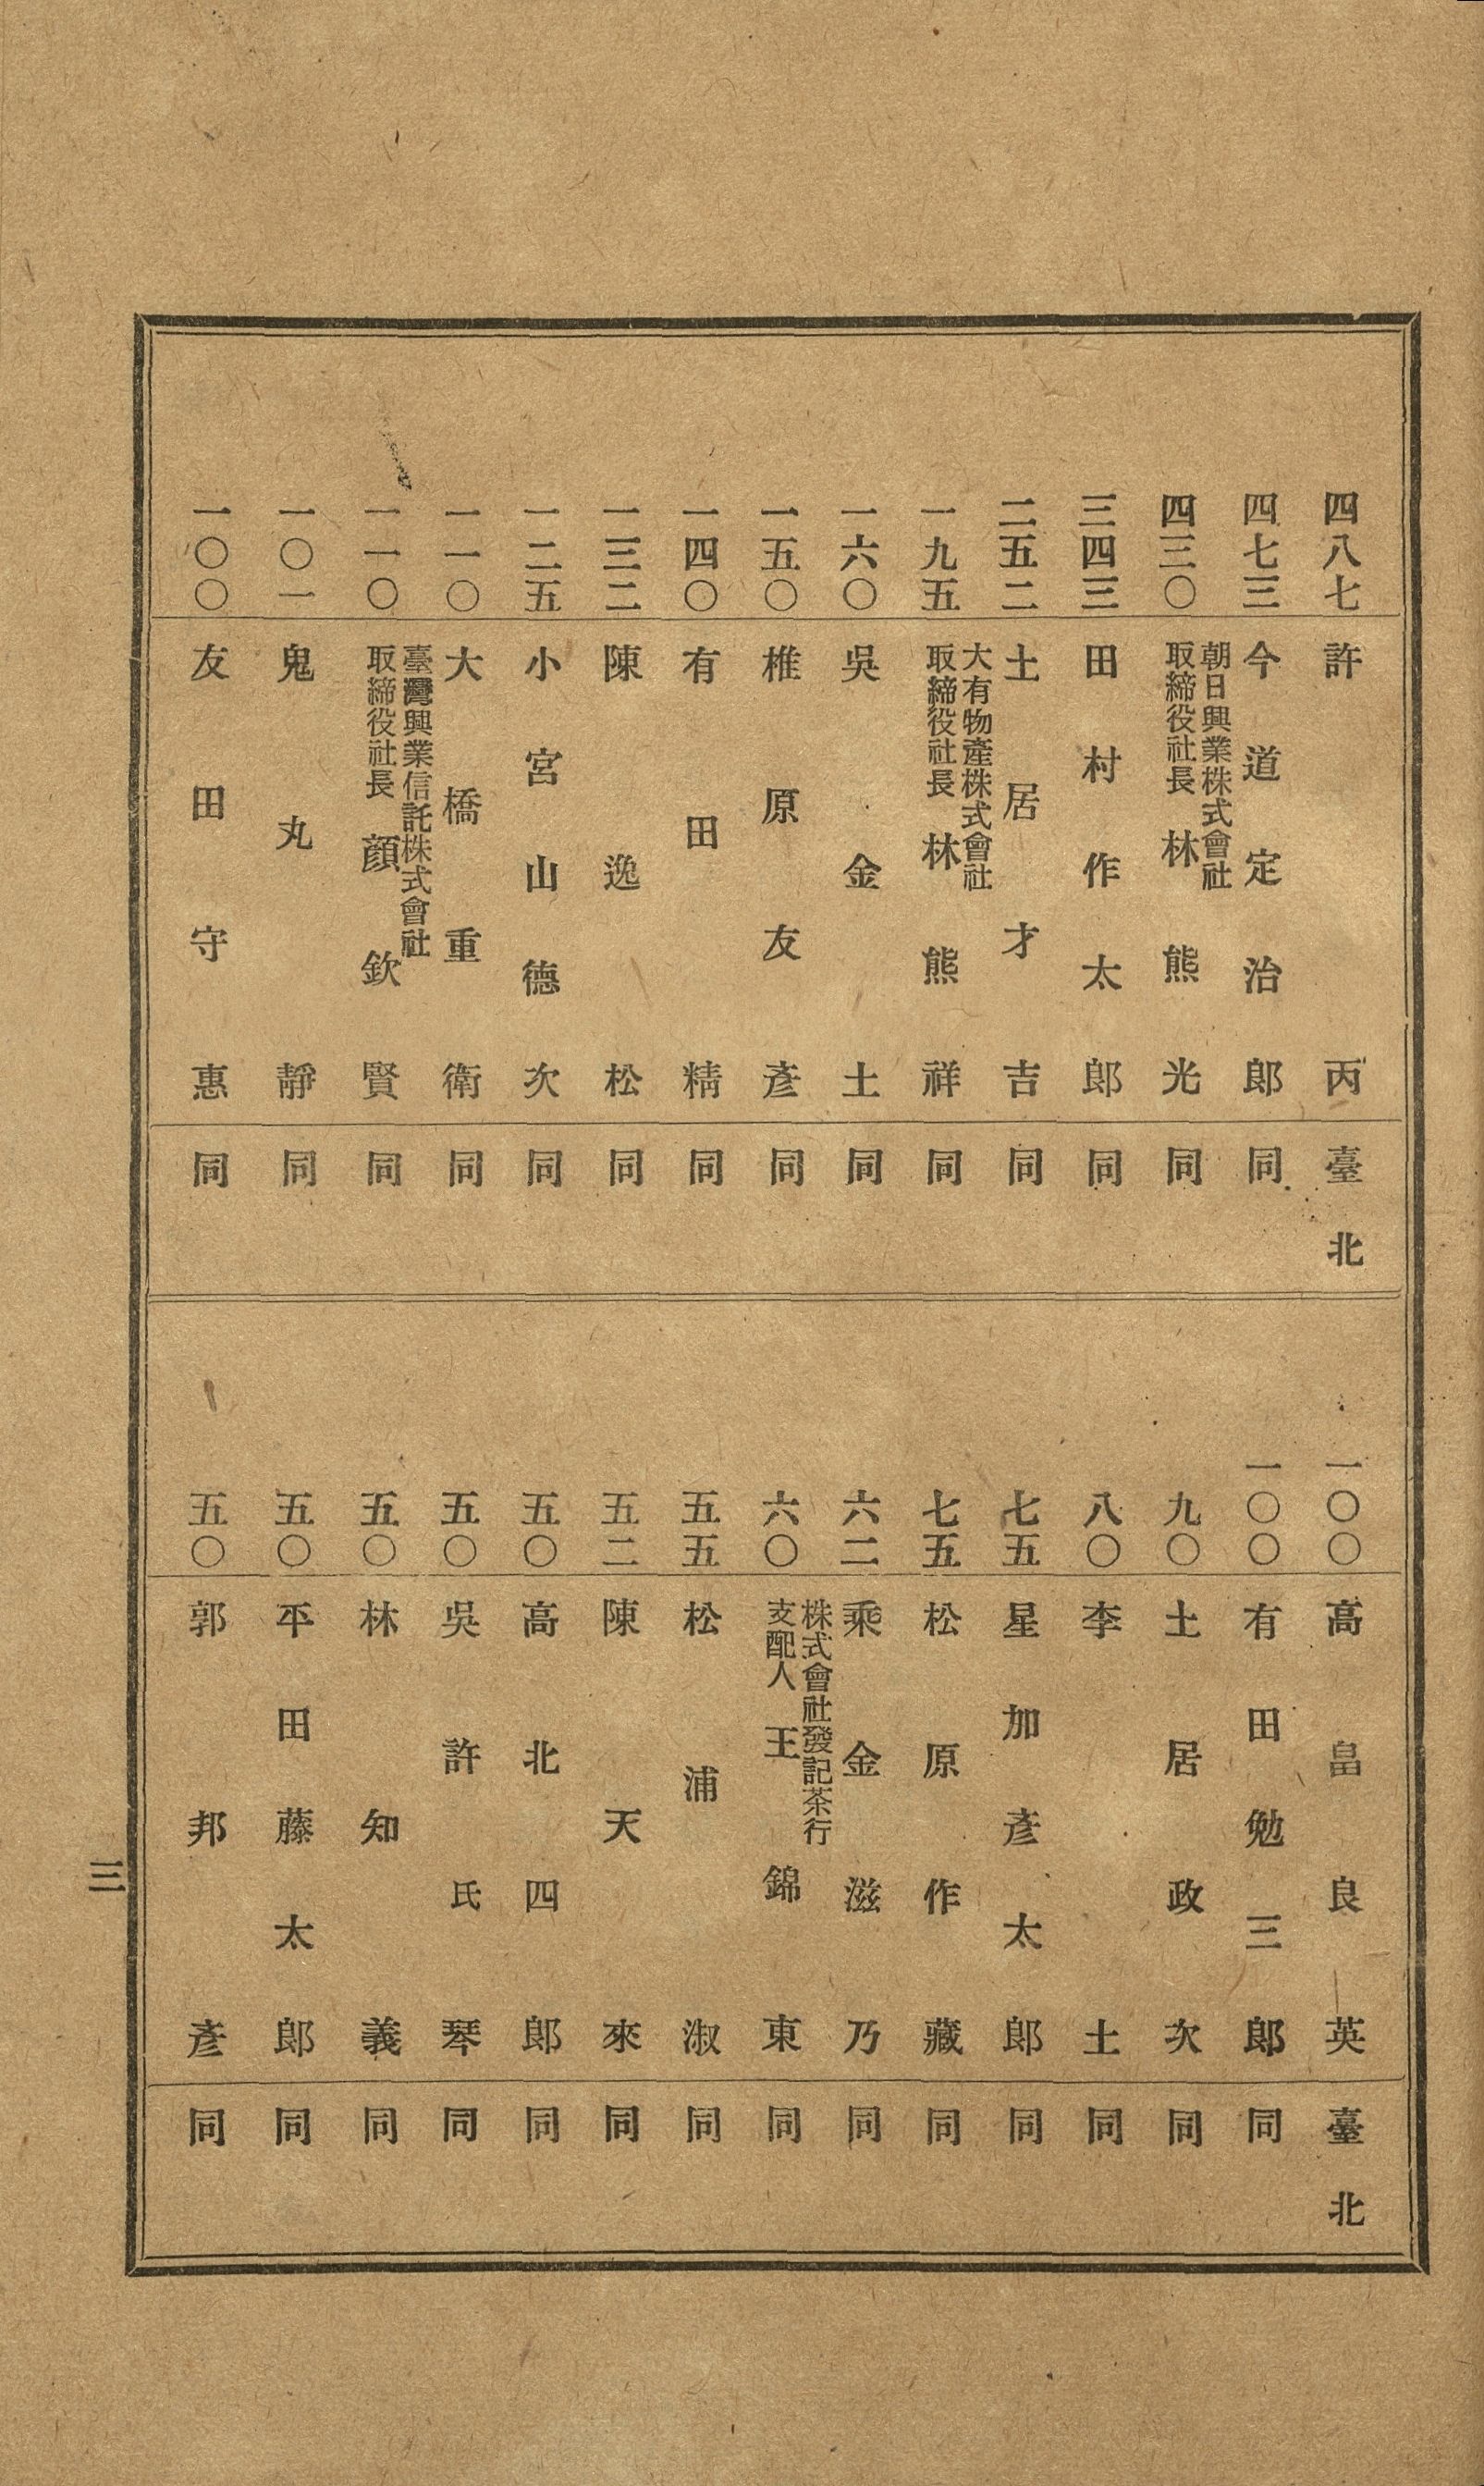 四八七 許丙 臺北
四七三 今道定治郎 同
四三〇 朝日興業株式會社取締役社長 林熊光 同
三四三 田村作太郎 同
二五二 土居才吉 同
一九五 大有物產株式會社取締役社長 林熊祥 同
一六〇 吳金土 同
一五〇 椎原友彥 同
一四〇 有田精 同
一三二 陳逸松 同
一二五 小宮山德次 同
一一〇 大橋重衛 同
一一〇 臺灣興業信託株式會社取締役社長 顏欽賢 同
一〇一 鬼丸靜 同
一〇〇 友田守惠 同
一〇〇 高畠良英 臺北
一〇〇 有田勉三郎 同
九〇 土居政次 同
八〇 李土 同
七五 星加彥太郎 同
七五 松原作藏 同
六二 乘金滋乃 同
六〇 株式會社發記茶行支配人 王錦東 同
五五 松浦淑 同
五二 陳天來 同
五〇 高北四郎 同
五〇 吳許氏琴 同
五〇 林知義 同
五〇 平田藤太郎 同
五〇 郭邦彥 同
三